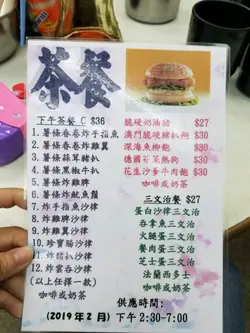 茶餐
下午茶餐 C $36
1. 薯條春卷炸手指魚
2. 薯條春卷炸雞翼
3. 薯條蒜茸豬扒
4. 薯條黑椒牛扒
5. 炸雞脾
6. 薯條炸魷魚鬚
7. 炸手指沙律
8. 炸魚沙律
9. 炸雞脾沙律
10. 炸雞翼沙律
11. 炸豬扒沙律
12. 炸雲吞沙律
(以上任擇一款)
咖啡或奶茶
脆硬奶油豬 $27
澳門脆硬豬扒飽 $30
深海魚柳飽 $30
德國芥茉熱狗 $30
花生沙爹牛肉飽 $30
咖啡或奶茶
三文治餐 $27
蛋白沙律三文治
吞拿魚三文治
火腿蛋三文治
餐肉蛋三文治
芝士蛋三文治
法蘭西多士
咖啡或奶茶
供應時間:
(2019年2月) 下午 2:30-7:00